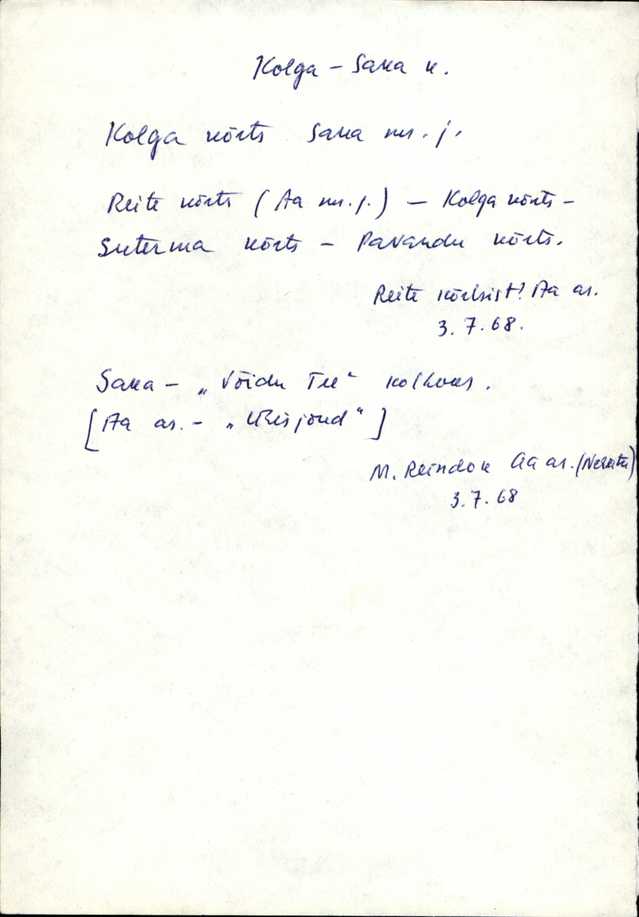 Kolga - Saka k.
Kolga kõrts Saka mr. j.
Reite kõrts (Aa mr. j.) - Kolga kõrts -
Suterma kõrts - Pavandu kõrts.
Reite kõrtsist! Aa as.
3.7.68.
Saka - „Võidu Tee" kolhoos.
[Aa as. - „Ühisjõud"]
M. Reindok Aa as.
3.7.68